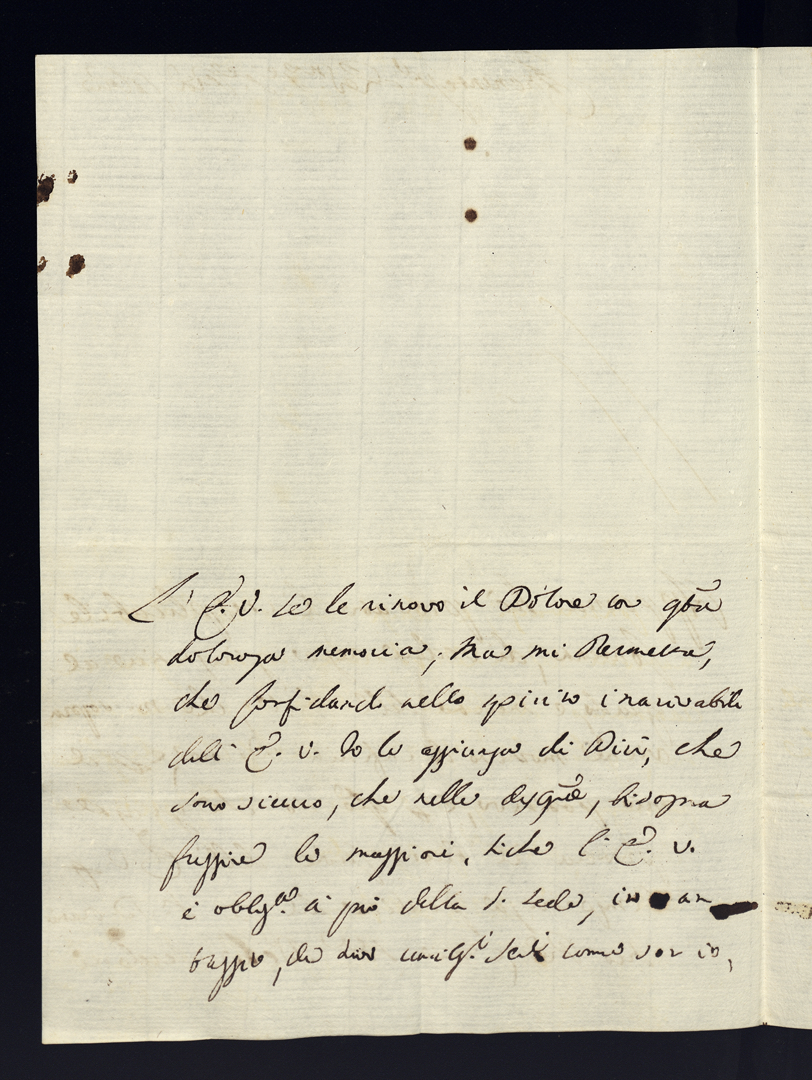 L' E. V. io le rinovo il Dolore con q̃ta
doloroza memoria, Ma mi Permetta,
che confidando nello spirito inarrivabile
dell' E. V. Io le aggiunga di Più, che
sono sicuro, che nelle disgr̃e, bisogna
fuggire le maggiori, siche l' E. V.
è obblig.ª ai piè della S. Sede, in van
taggio, di due come son io,